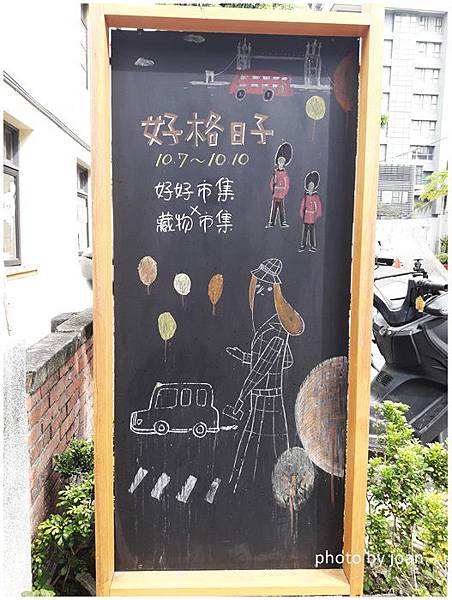 好格日子
10.7~10.10
好好市集
×
藏物市集
photo by joan